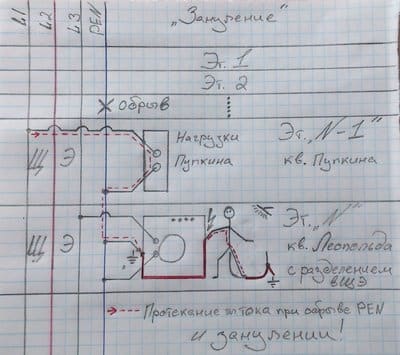 L1 L2 L3 PEN
„Зануление"
Эт. 1
Эт. 2
Обрыв
Нагрузки
Пупкина
Эт. „N-1"
кв. Пупкина
Щ Э
Эт. „N"
кв. Леопольда
с разделением
в ЩЭ
Щ Э
Протекание эл тока при обрыве PEN
и занулении!